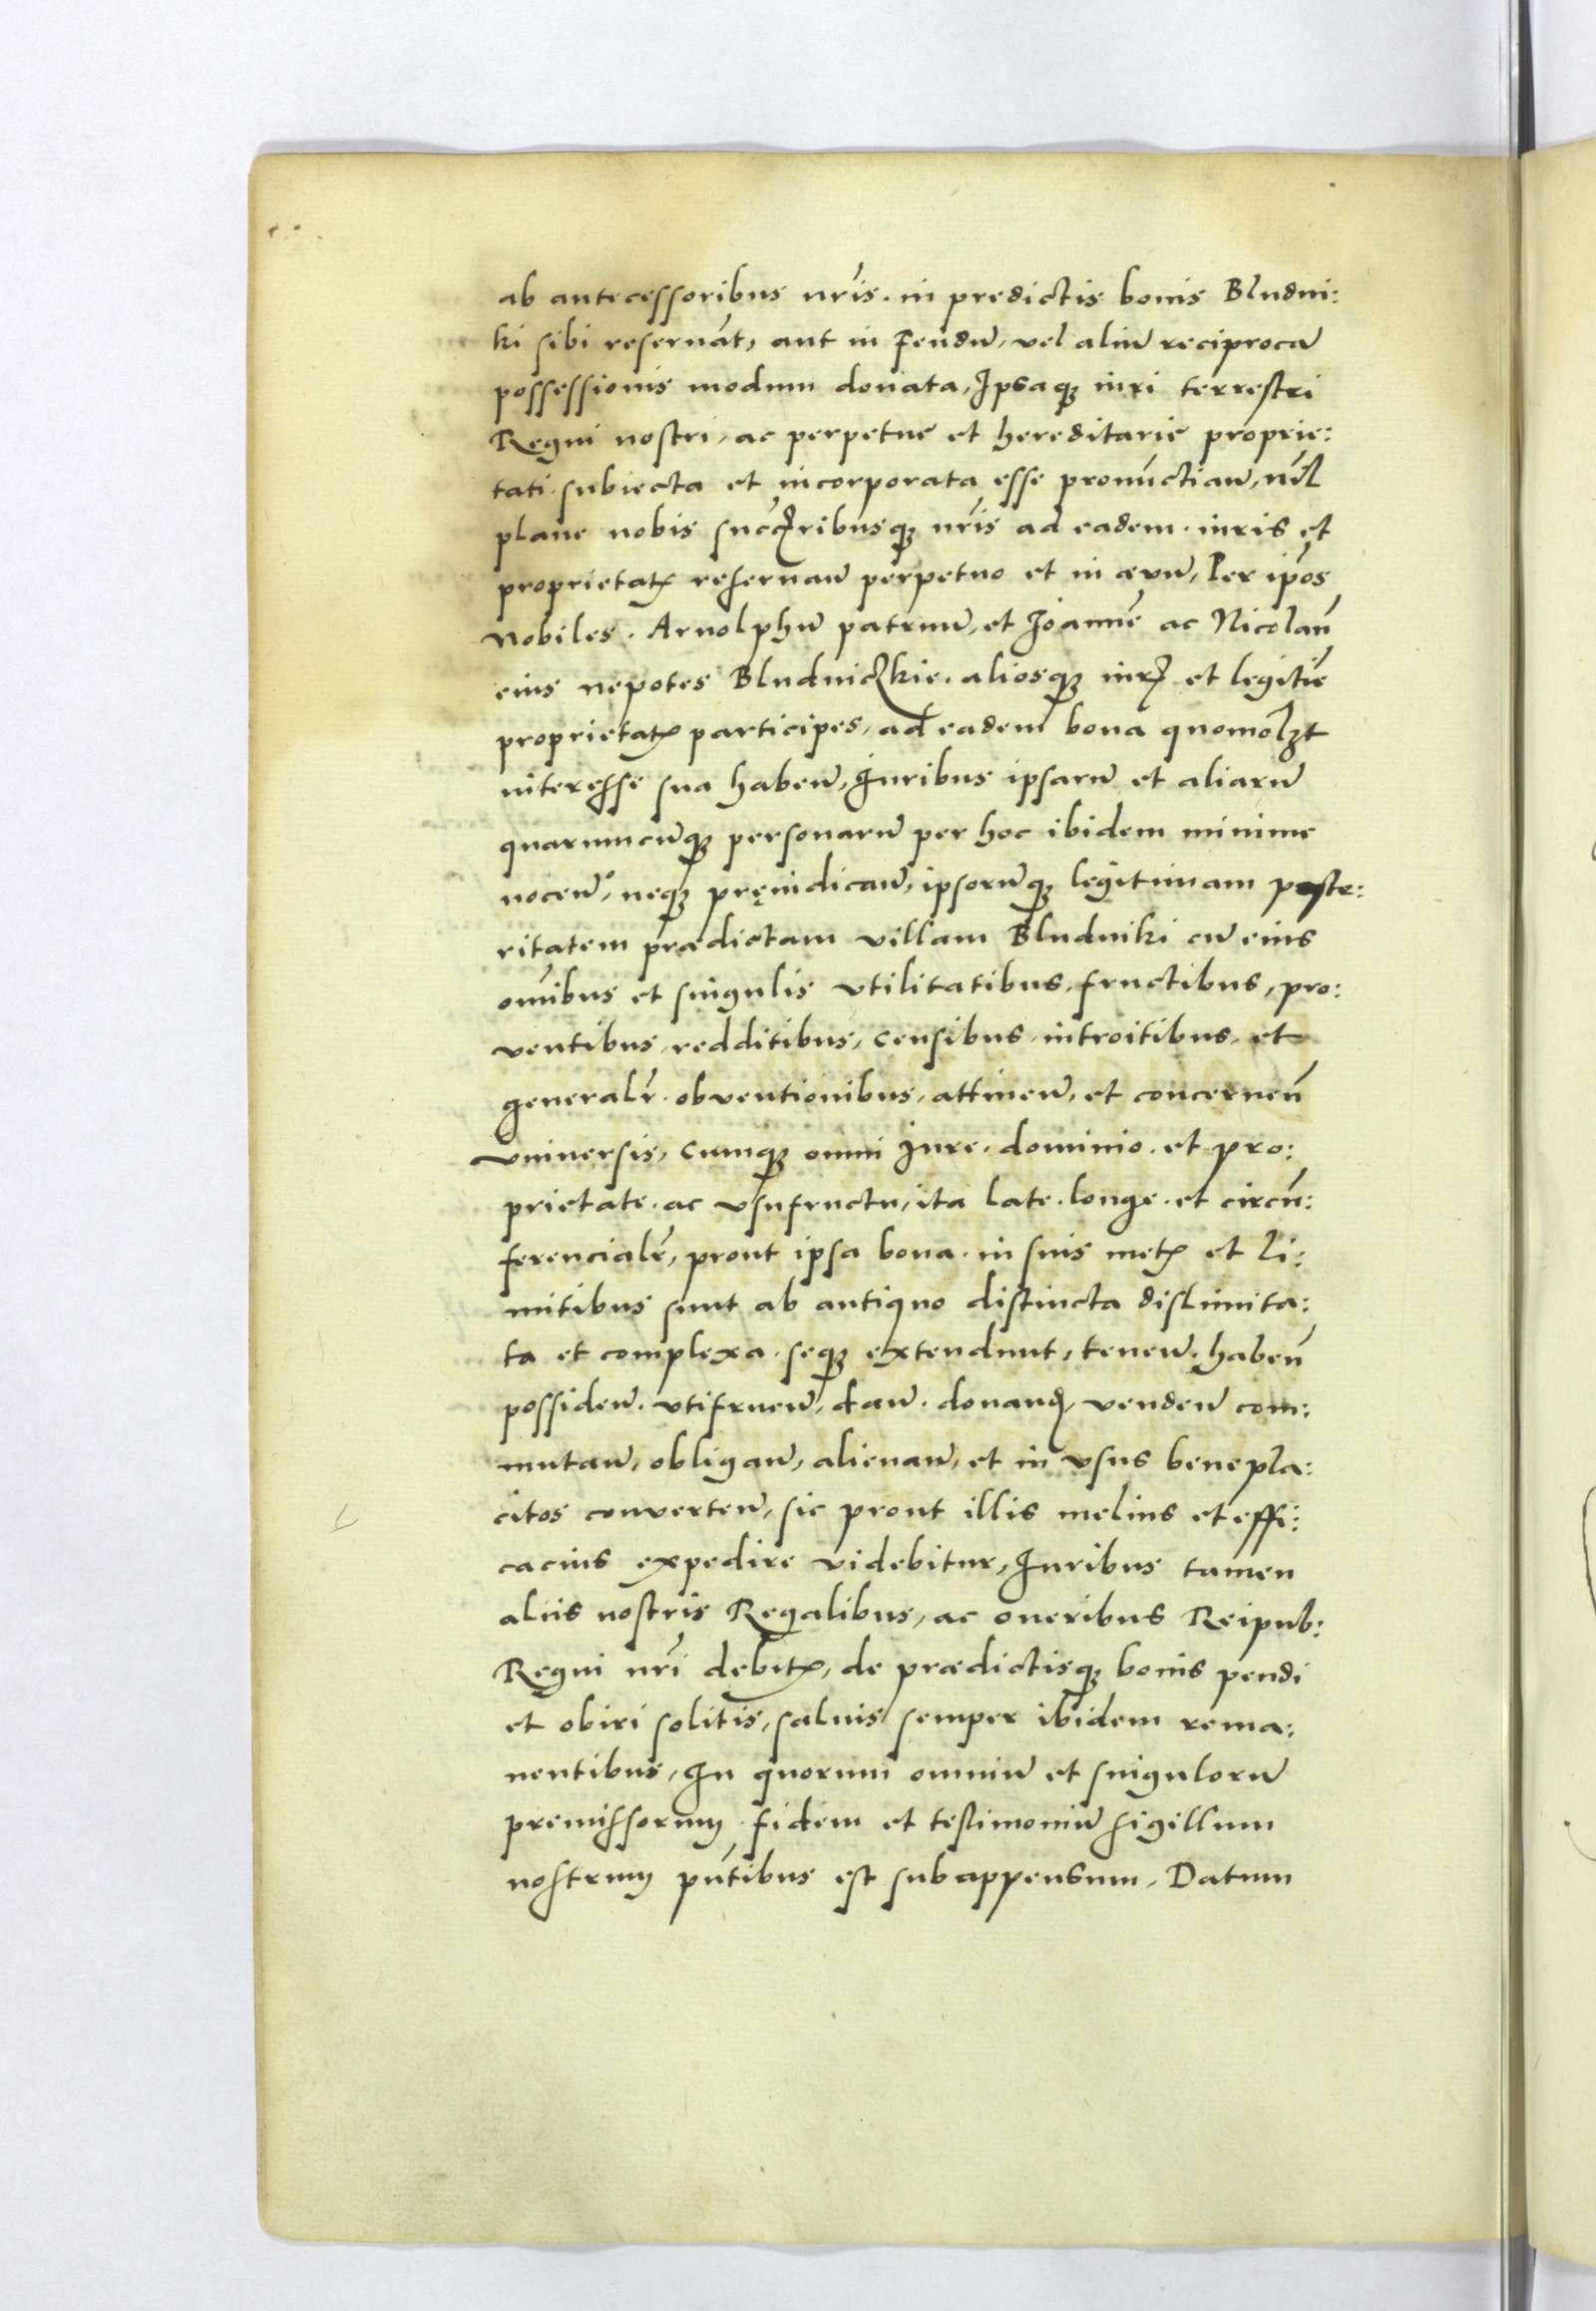 ab antecessoribus nr̃is. in predictis bonis Bludni:
ki sibi reseruãt, aut in Feudũ, vel aliũ reciprocũ
possessionis modum donata, Ipsaq₃ iuri terrestri
Regni nostri, ac perpetue et hereditarie proprie:
tati subiecta et incorporata esse pronũctiañ, nĩl
plane nobis succꝛ̃ribusq₃ nr̃is ad eadem. iuris et
proprietatꝭ reseruañ perpetuo et in aevũ, Per ip̃os
Nobiles. Arnolphũ patruũ, et Joannẽ ac Nicolaũ
eius nepotes Bludniczkie. aliosq₃ iurꝭ et legitiẽ
proprietatꝭ participes, ad eadem bona quomolꝫt
interesse sua habeñ, Iuribus ipsarũ et aliarũ
quarumcũq₃ personarũ per hoc ibidem minime
noceñ, neq₃ pręiudicañ, ipsorũq₃ legitimam poste:
ritatem prædictam villam Bludniki cũ eius
om̃ibus et singulis vtilitatibus, fructibus, pro:
ventibus, redditibus, censibus, introitibus, et
generalr̃. obventionibus, attineñ, et concerneñ
vniuersis, cumq₃ omni Jure, dominio. et pro:
prietate. ac vsufructu, ita late. longe. et circũ:
ferencialr̃, prout ipsa bona. in suis metꝭ et li:
mitibus sunt ab antiquo distincta dislimita:
ta et complexa. seq₃ extendunt, teneñ. habeñ
possideñ. vtifrueñ, dañ. donanđ, vendeñ com:
mutañ, obligañ, alienañ, et in vsus benepla:
citos converteñ, sic prout illis melius et effi:
cacius expedire videbitur, Iuribus tamen
aliis nostris Regalibus, ac oneribus Reipub:
Regni nr̃i debitꝭ, de prædictisq₃ bonis pendi
et obiri solitis, saluis semper ibidem rema:
nentibus, In quorum omniũ et singulorũ
premissorum fidem et testimoniũ sigillum
nostrum pñtibus est subappensum, Datum